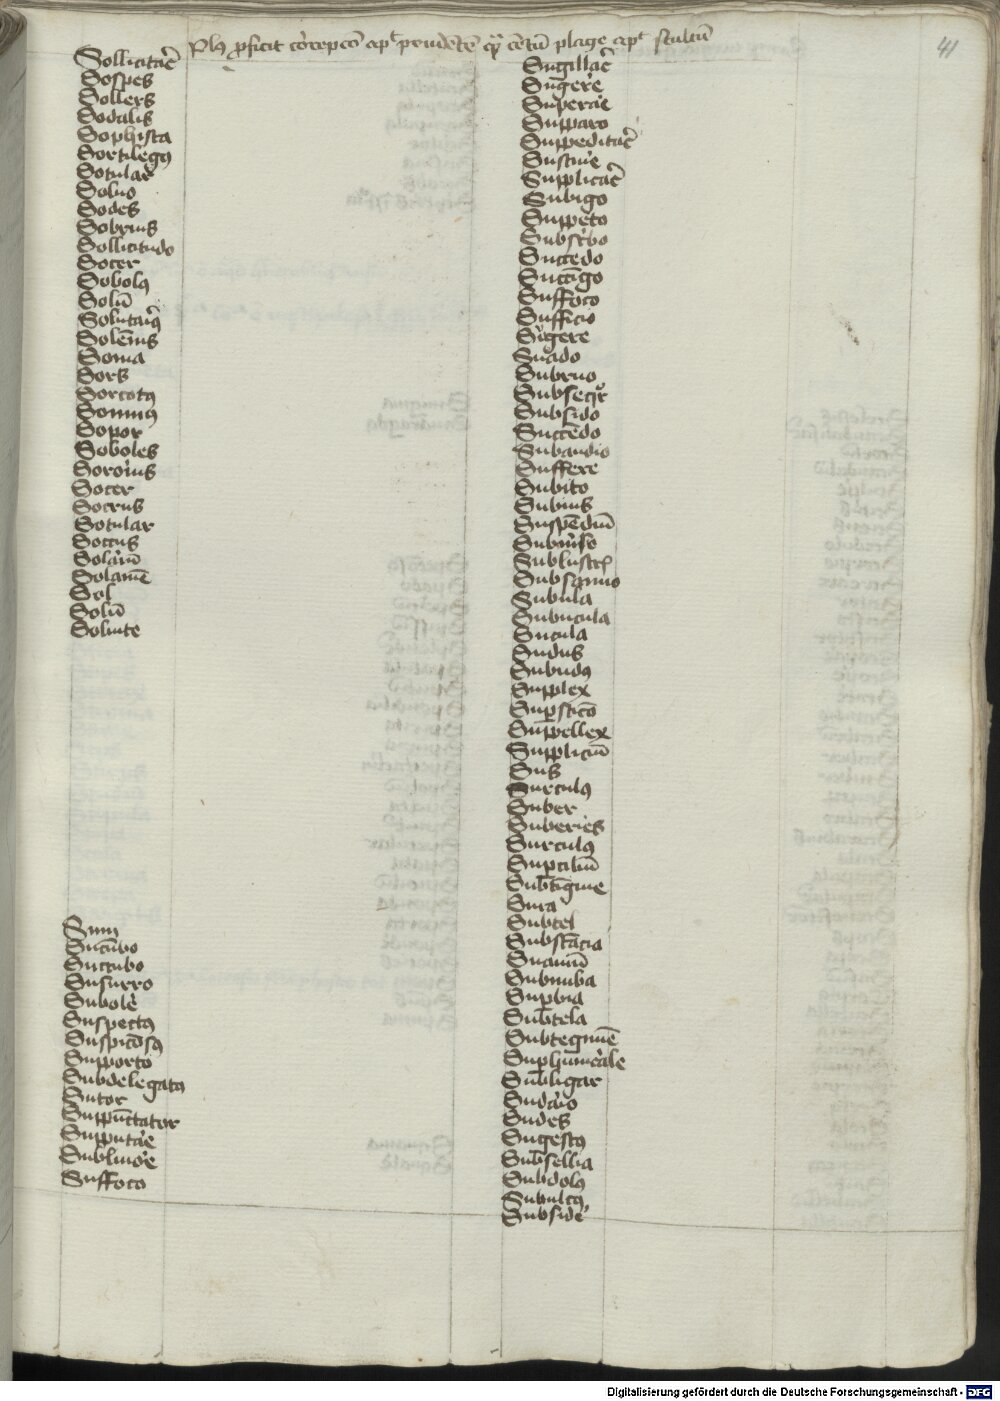 Plus proficit correpcio apud prudentem quam centum plage apud stultum
41
Sollicitare
Sospes
Sollers
Sodalis
Sophista
Sortilegus
Sotular
Soluo
Sodes
Sobrius
Sollicitudo
Socer
Sobolus
Solum
Solutarius
Solennis
Soma
Sors
Sorcotus
Somnus
Sopor
Soboles
Sororius
Socer
Socrus
Sotular
Soccus
Solarium
Solamen
Sol
Solum
Soluite
Sum
Sucumbo
Succubo
Susurro
Subolere
Suspectus
Suspiciosus
Supporto
Subdelegatus
Sutor
Suppuntator
Supputare
Subluuie
Suffoco
Sugillare
Sugerere
Superare
Supparo
Suppeditare
Sustinere
Supplicare
Subigo
Suppeto
Subscribo
Succedo
Succingo
Suffoco
Sufficio
Sugere
Suado
Subruo
Subsequor
Subsido
Succendo
Subaudio
Suffere
Subito
Subius
Suspendium
Subuerso
Sublustris
Subsanno
Subula
Subucula
Sucula
Sudus
Subudus
Supplex
Supersticio
Suppellex
Supplicium
Sus
Surculus
Suber
Suberies
Surculus
Supercilium
Subtingwe
Sura
Subtel
Substancia
Sucinum
Subnuba
Superbia
Subtela
Subtegmen
Superhumerale
Subligar
Sudario
Sudes
Sugestus
Subsellia
Subdolus
Subulcus
Subsidere
Digitalisierung gefördert durch die Deutsche Forschungsgemeinschaft - DFG